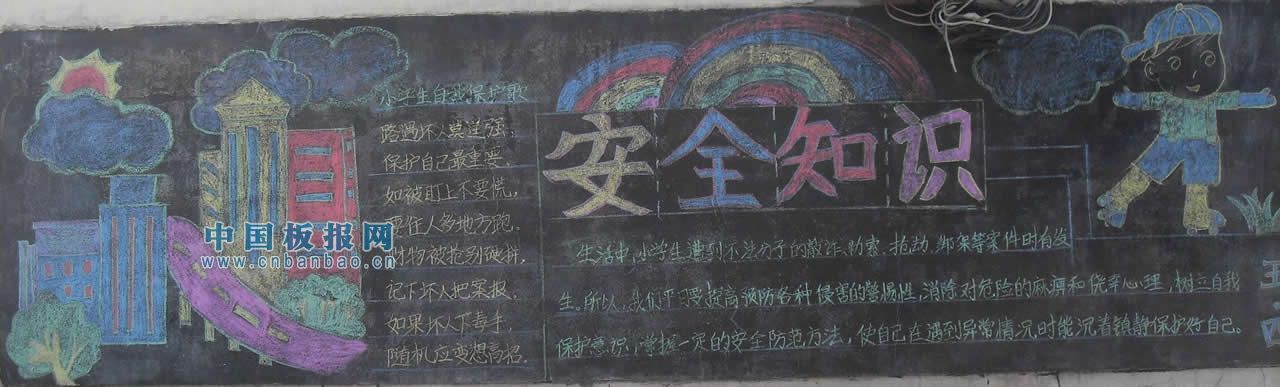 小学生自我保护歌
路遇坏人莫逞强,
保护自己最重要,
如被盯上不要慌,
要往人多地方跑,
财物被抢别硬拼,
记下坏人把案报,
如果坏人下毒手,
随机应变想高招.
安全知识
生活中,小学生遭到不法分子的敲诈、勒索、抢劫、绑架等案件时有发
生。所以,我们平日要提高预防各种侵害的警惕性,消除对危险的麻痹和侥幸心理,树立自我
保护意识,掌握一定的安全防范方法,使自己在遇到异常情况时能沉着镇静保护好自己。
中国板报网
www.cnbanbao.cn